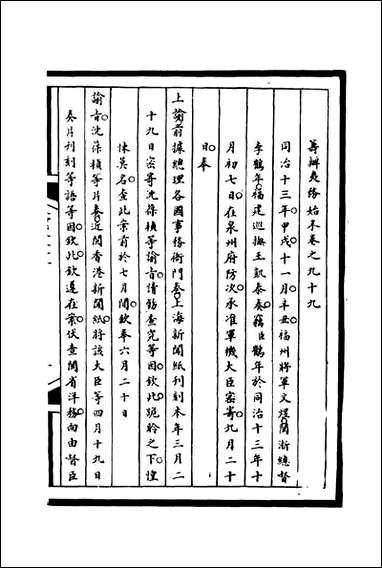 籌辦夷務始末卷之九十九
同治十三年甲戌十一月辛丑福州將軍文煜閩浙總督
李鶴年福建巡撫王凱泰奏竊臣鶴年於同治十三年十
月初七日在泉州府防次承准軍機大臣密寄九月二十
日奉
上諭前據總理各國事務衙門奏上海新聞紙刊刻本年三月二
十九日密寄沈葆楨等諭旨請飭查究等因欽此跪聆之下惶
悚莫名查此案前於七月間欽奉六月二十日
諭旨沈葆楨等片奏近閱香港新聞紙將該大臣等四月十九日
奏片刊刻等語等因欽此欽遵在案伏查閩省洋務向由督臣